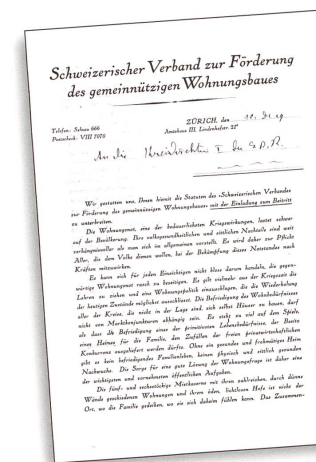 Schweizerischer Verband zur Förderung
des gemeinnützigen Wohnungsbaues
Telefon: Selnau 666
Postscheck: VIII 7070
ZÜRICH, den
Amtshaus III, Lindenhofstr. 21
An die Kreisdirektion I der S.B.B.
Wir gestatten uns, Ihnen hiemit die Statuten des «Schweizerischen Verbandes
zur Förderung des gemeinnützigen Wohnungsbaues» mit der Einladung zum Beitritt
zu unterbreiten.
Die Wohnungsnot, eine der bedauerlichsten Kriegswirkungen, lastet schwer
auf der Bevölkerung. Ihre volksgesundheitlichen und sittlichen Nachteile sind weit
verhängnisvoller als man sich im allgemeinen vorstellt. Es wird daher zur Pflicht
Aller, die dem Volke dienen wollen, bei der Bekämpfung dieses Notstandes nach
Kräften mitzuwirken.
Es kann sich für jeden Einsichtigen nicht bloss darum handeln, die gegen-
wärtige Wohnungsnot rasch zu beseitigen. Es gilt vielmehr aus der Kriegszeit die
Lehren zu ziehen und eine Wohnungspolitik einzuschlagen, die die Wiederholung
der heutigen Zustände möglichst ausschliesst. Die Befriedigung des Wohnbedürfnisses
aller der Kreise, die nicht in der Lage sind, sich selbst Häuser zu bauen, darf
nicht von Marktkonjunkturen abhängig sein. Es steht zu viel auf dem Spiele,
als dass die Befriedigung eines der primitivsten Lebensbedürfnisse, der Besitz
eines Heimes für die Familie, den Zufällen der freien privatwirtschaftlichen
Konkurrenz ausgeliefert werden dürfte. Ohne ein gesundes und freimütiges Heim
gibt es kein befriedigendes Familienleben, keinen physisch und sittlich gesunden
Nachwuchs. Die Sorge für eine gute Lösung der Wohnungsfrage ist daher eine
der wichtigsten und vornehmsten öffentlichen Aufgaben.
Die fünf- und sechsstöckige Mietkaserne mit ihren zahlreichen, durch dünne
Wände geschiedenen Wohnungen und ihrem öden, lichtlosen Hofe ist nicht der
Ort, wo die Familie gedeihen, wo sie sich daheim fühlen kann. Das Zusammen-